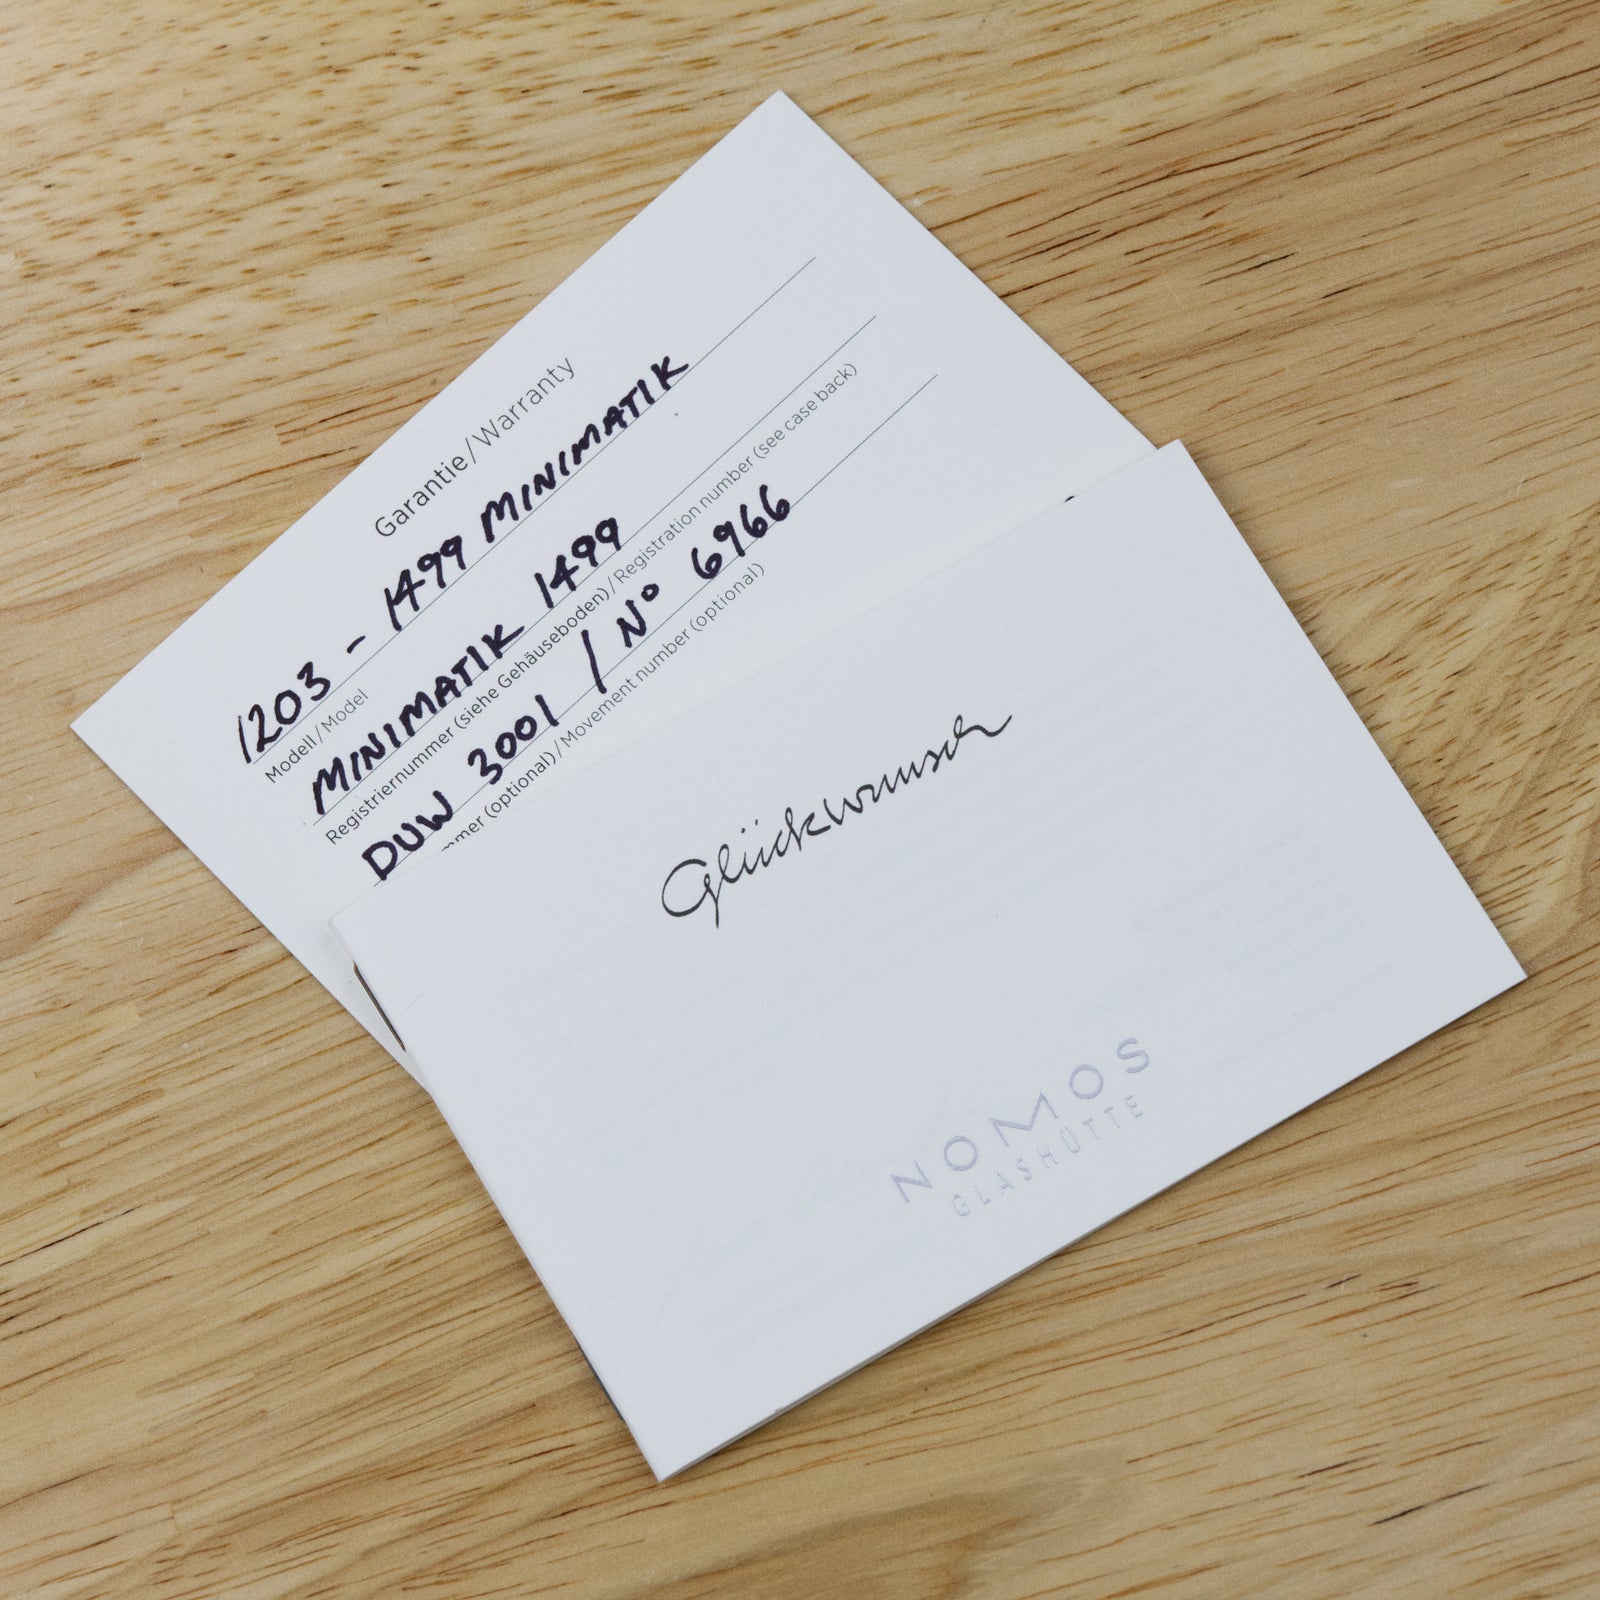 Garantie/Warranty
1203 - 1499 MINIMATIK
Modell/Model
MINIMATIK 1499
Registriernummer (siehe Gehäuseboden)/Registration number (see case back)
DUW 3001 / Nº 6966
mmer (optional)/Movement number (optional)
Glückwunsch
NOMOS
GLASHÜTTE